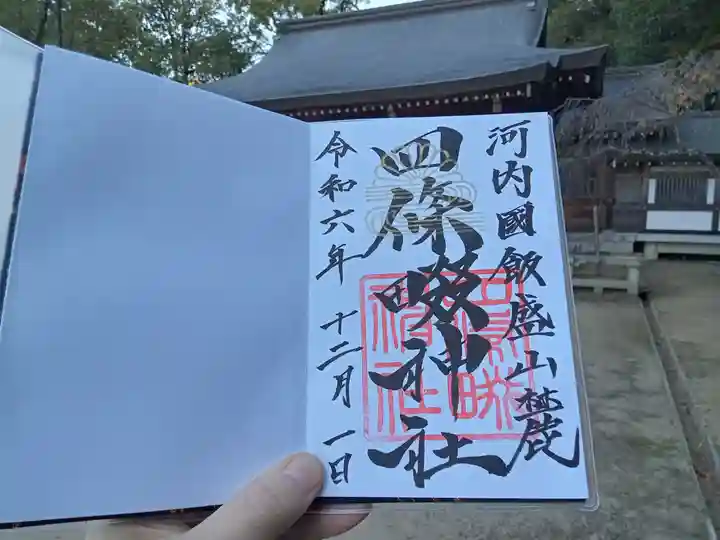 河内國飯盛山麓
四條畷神社
令和六年十二月一日